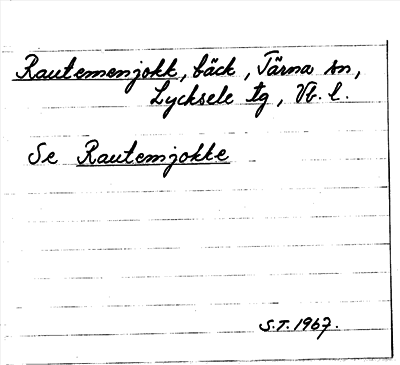 Rautemenjokk, bäck, Tärna sn,
Lycksele tg, Vb. l.
Se Rautemjokke
S.T. 1967.